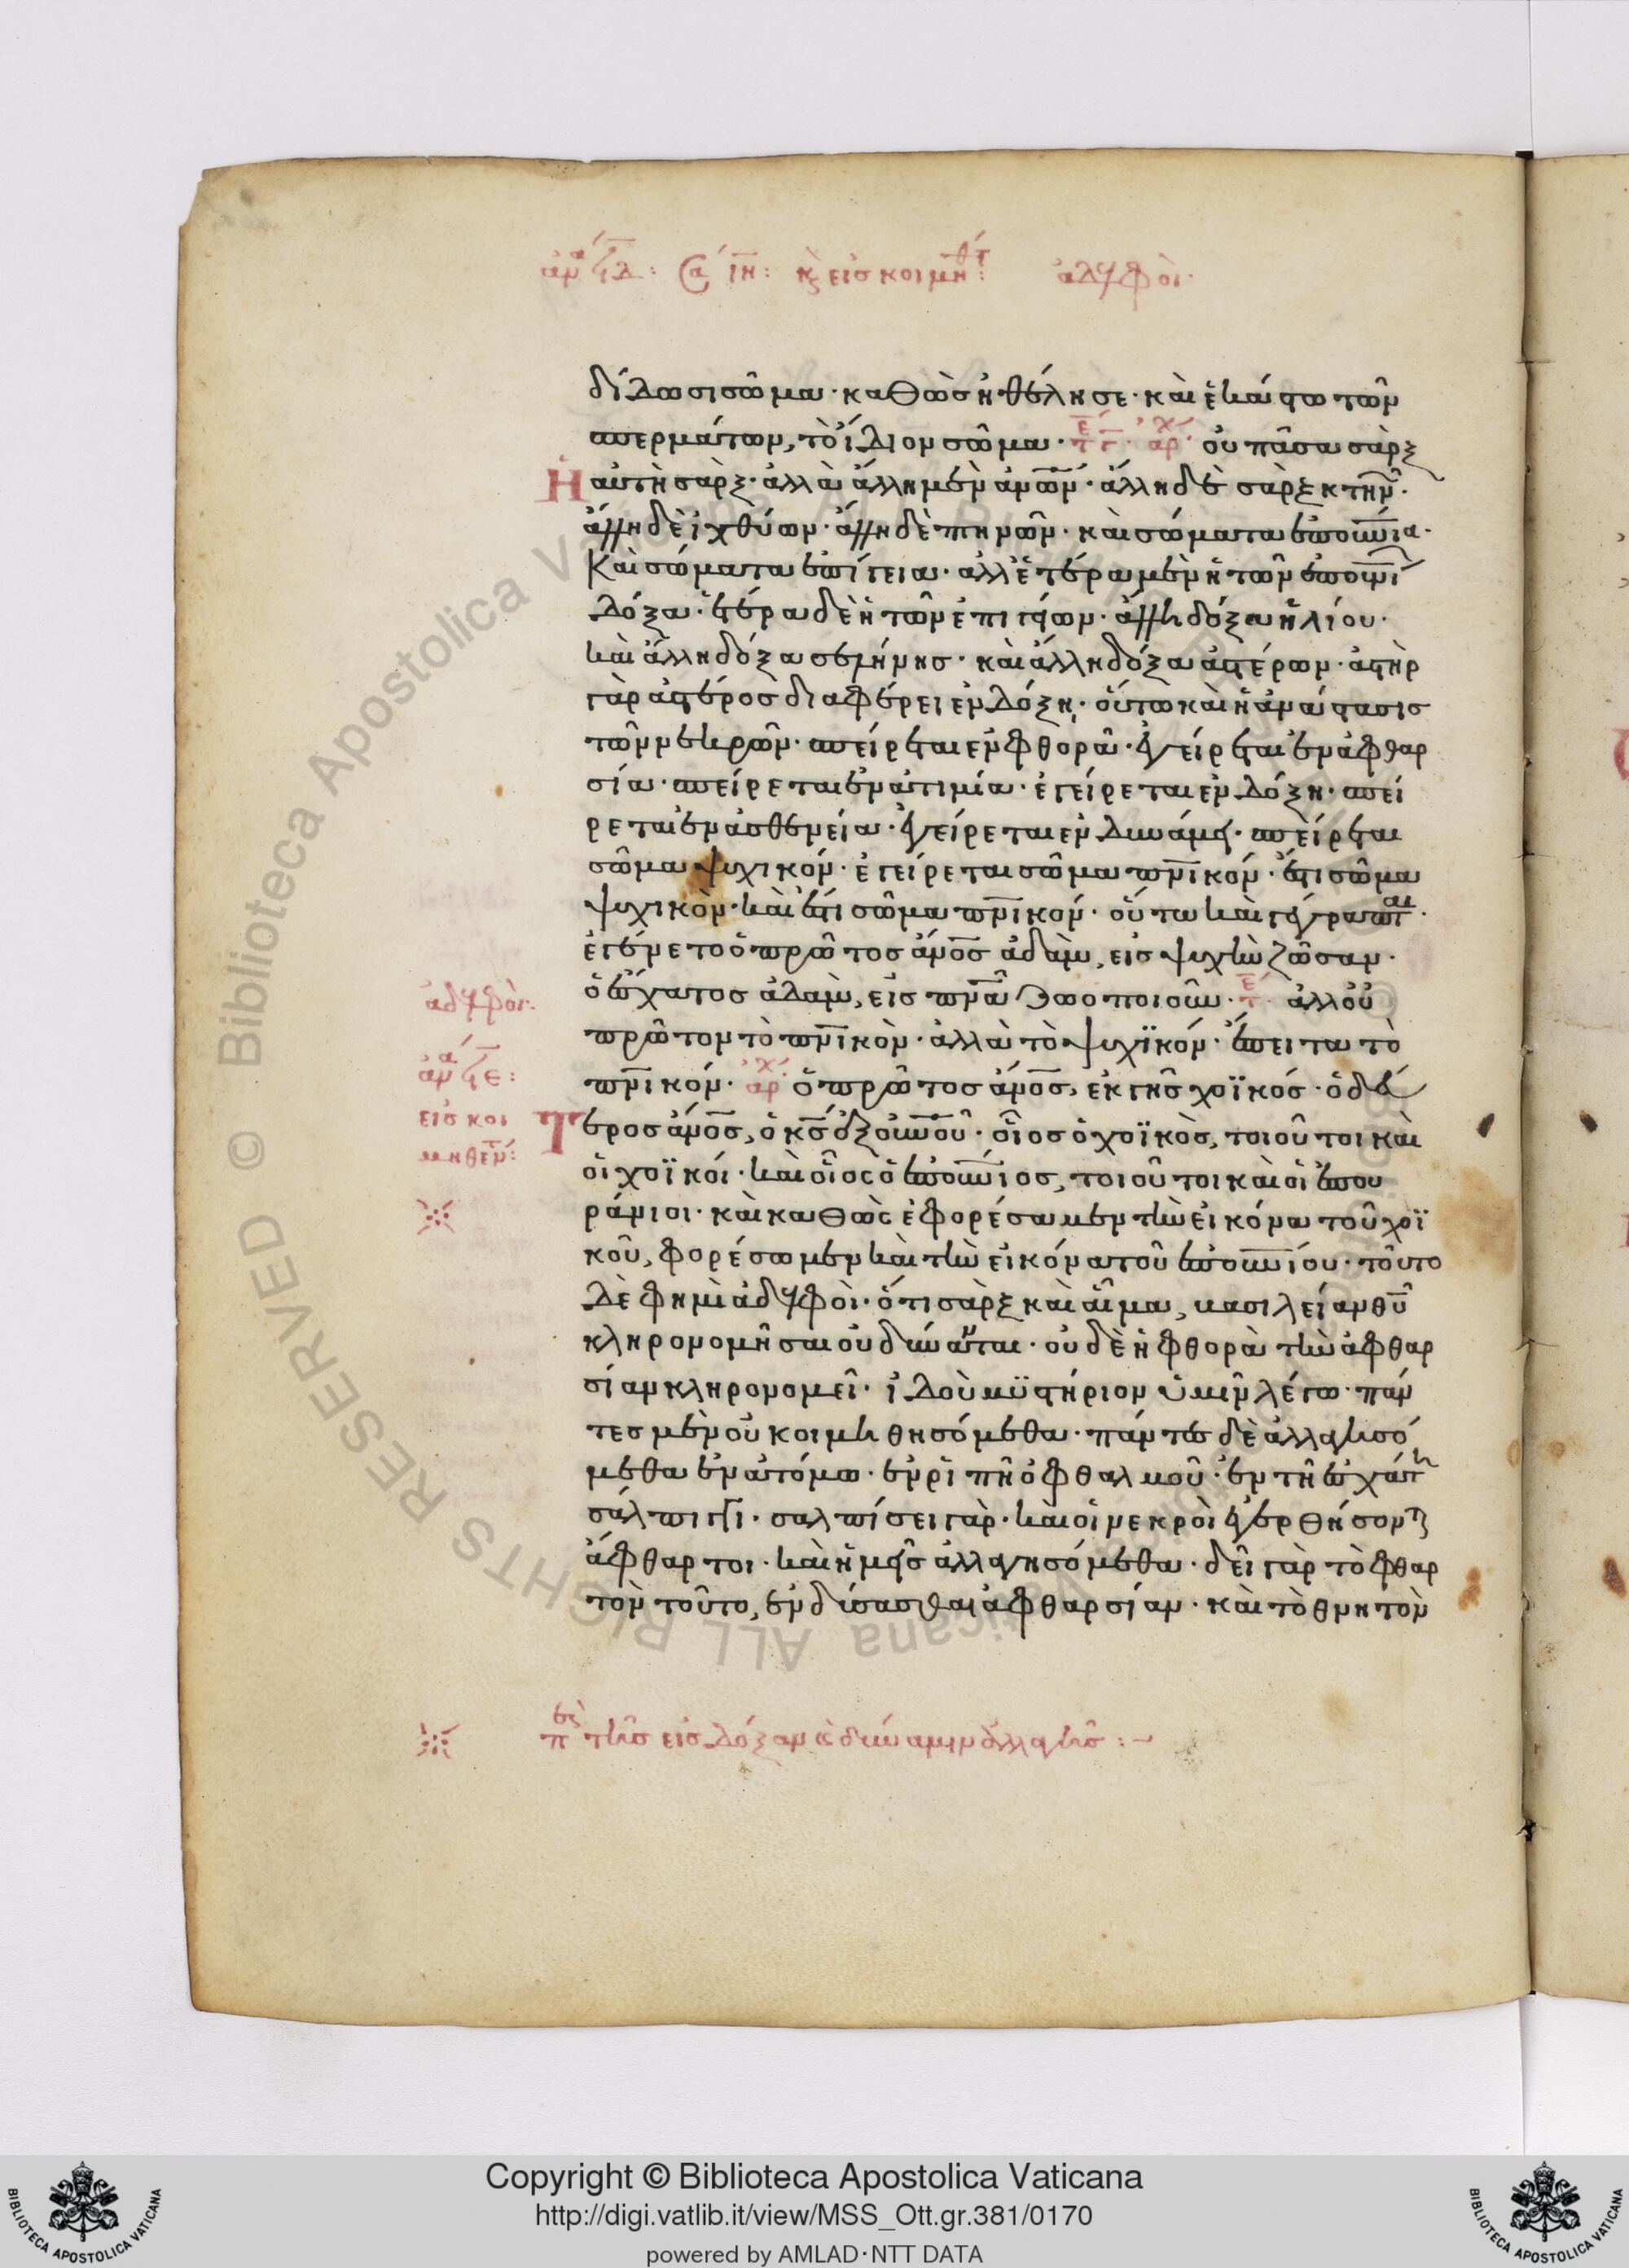 δίδωσι σῶμα· καθὼς ἠθέλησε· καὶ ἑκάστω τῶν
σπερμάτων, τὸ ἴδιον σῶμα· οὐ πᾶσα σὰρξ
Ἡ αὐτὴ σὰρξ· ἀλλὰ ἄλλη μὲν ἀν̅ων· ἄλλη δὲ σὰρξ κτην·
ἄλλη δὲ ἰχθύων· ἄλλη δὲ πηνῶν· καὶ σώματα ἐπουν̅ια·
Καὶ σώματα ἐπίγεια· ἀλλ' ἑτέρα μὲν ἡ τῶν ἐπουνι
δόξα· ἑτέρα δὲ ἡ τῶν ἐπιγείων· ἄλλη δόξα ἡλίου·
καὶ ἄλλη δόξα σελήνησ· καὶ ἄλλη δόξα ἀστέρων· ἀστὴρ
γὰρ ἀστέροσ διαφέρει ἐν δόξη· οὕτω καὶ ἡ ἀνάστασισ
τῶν νεκρῶν· σπείρεται ἐν φθορᾶ· ἐγείρεται ἐν ἀφθαρ
σία· σπείρεται ἐν ἀτιμία· ἐγείρεται ἐν δόξη· σπεί
ρεται ἐν ἀσθενεία· ἐγείρεται ἐν δυνάμει· σπείρεται
σῶμα ψυχικόν· ἐγείρεται σῶμα πν̅ικόν· ἔστι σῶμα
ψυχικὸν· καὶ ἔστι σῶμα πν̅ικόν· οὕτω καὶ γέγραπται·
ἐγένετο ὁ πρῶτοσ ἄν̅οσ ἀδὰμ, εἰσ ψυχὴν ζῶσαν·
ὁ ἔσχατοσ ἀδὰμ, εἰσ πν̅α ζωοποιοῦν· ἀλλ' οὐ
ἀδελφοὶ·
πρῶτον τὸ πν̅ικὸν· ἀλλὰ τὸ ψυχϊκόν· ἔπειτα τὸ
πν̅ικόν· ὁ πρῶτοσ ἄν̅οσ, ἐκ γῆσ χοϊκόσ· ὁ δεύ
εἰσ κοι
Τερος ἄν̅οσ, ὁ κ̅σ ἐξ οὐν̅οῦ· οἷοσ ὁ χοϊκὸσ, τοιοῦτοι καὶ
μηθεν:
οἱ χοϊκοί· καὶ οἷος ὁ ἐπουν̅ιοσ, τοιοῦτοι καὶ οἱ ἐπου
ράνιοι· καὶ καθὼς ἐφορέσαμεν τὴν εἰκόνα τοῦ χοϊ
κοῦ, φορέσωμεν καὶ τὴν εἰκόνα τοῦ ἐπουν̅ίου· τοῦτο
δὲ φημὶ ἀδελφοὶ· ὅτι σὰρξ καὶ αἷμα, βασιλείαν θ̅υ
κληρονομῆσαι οὐ δύνανται· οὐδὲ ἡ φθορὰ τὴν ἀφθαρ
σίαν κληρονομεῖ· ἰδοὺ μϋστήριον ὑμῖν λέγω· πάν
τεσ μὲν οὐ κοιμηθησόμεθα· πάντεσ δὲ ἀλλαγησό
μεθα ἐν ἀτόμω· ἐν ῥιπῆ ὀφθαλμοῦ· ἐν τῆ ἐσχάτη
σάλπιγγι· σαλπίσει γὰρ· καὶ οἱ νεκροὶ ἐγερθήσονται
ἄφθαρτοι· καὶ ἡμεῖσ ἀλλαγησόμεθα· δεῖ γὰρ τὸ φθαρ
τὸν τοῦτο, ἐνδύσασθαι ἀφθαρσίαν· καὶ τὸ θνητὸν
τῆσ εἰσ δόξαν δύναμιν ἀλλαγῆσ:
Copyright © Biblioteca Apostolica Vaticana
http://digi.vatlib.it/view/MSS_Ott.gr.381/0170
powered by AMLAD·NTT DATA
BIBLIOTECA APOSTOLICA VATICANA
BIBLIOTECA APOSTOLICA VATICANA
© Biblioteca Apostolica Vaticana ALL RIGHTS RESERVED